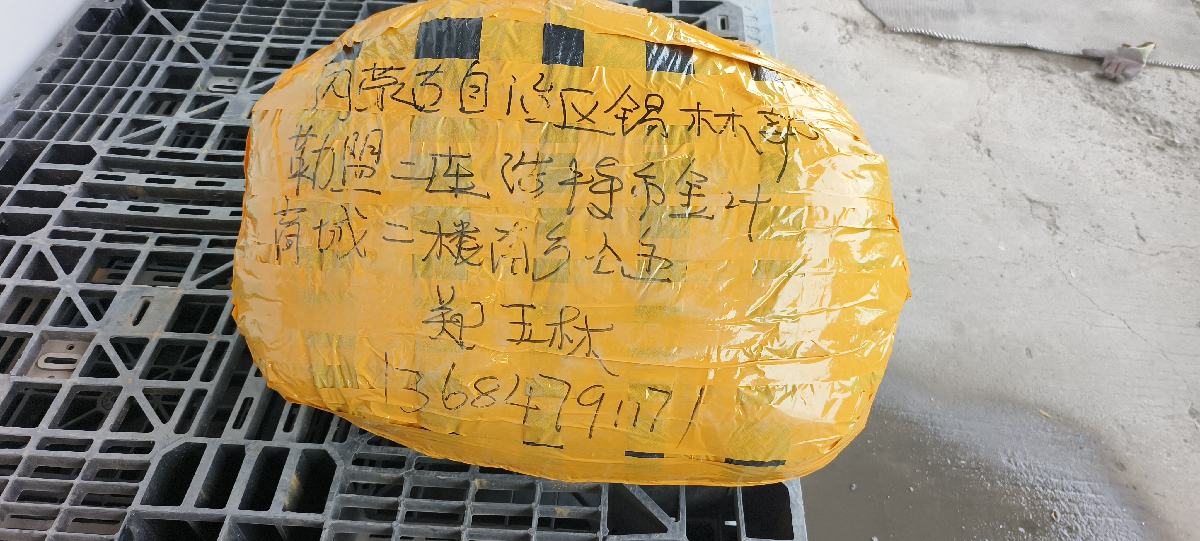 内蒙古自治区锡林郭
勒盟二连浩特市金叶
商城二楼
郑玉林
13684791171